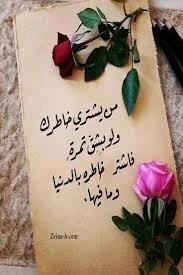 من يشتري خاطرك
ولو بشق تمرة،
فاشتر خاطره بالدنيا
وما فيها.